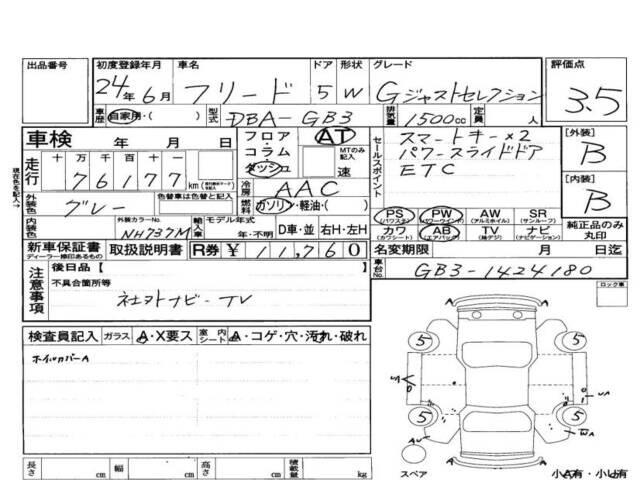 出品番号
初度登録年月 車名 ドア 形状 グレード 評価点
24年6月 フリード 5 W Gジャストセレクション 3.5
車歴 自家用・( ) 型式 DBA-GB3 排気量 1500cc 定員 人
車検 年 月 日
フロア・コラム・ダッシュ AT MTのみ記入 速
セールスポイント
スマートキー×2
パワースライドドア
ETC
[外装] B
[内装] B
純正品のみ丸印
現在色を記入→
走行 十 万 千 百 十 一
76177km
冷房 AAC
燃料 ガソリン・軽油・( )
外装色 グレー 色替車は色替と記入
内装色 外装カラーNo. NH737M
輸入車 モデル年式 年・不明 D車・並 右H・左H
PS(パワステ) PW(パワーウィンドウ) AW(アルミホイル) SR(サンルーフ)
カワ(カワシート) AB(エアバック) TV(純デジ) ナビ(ナビゲーション)
新車保証書 ディーラー捺印あるもの 取扱説明書 R券 ¥11,760
名変期限 月 日迄
車台No. GB3-1424180
注意事項
後日品[ ]
不具合箇所等
社ヲトナビ-TV
ロック車
検査員記入 ガラス A・X要ス 室内シート A・コゲ・穴・汚れ・破れ
ホイルカバーA
A
5 5
UA
UA
5 5
AU
WA
A
スペア 小A有・小U有
長さ cm 幅 cm 高さ cm 積載量 kg